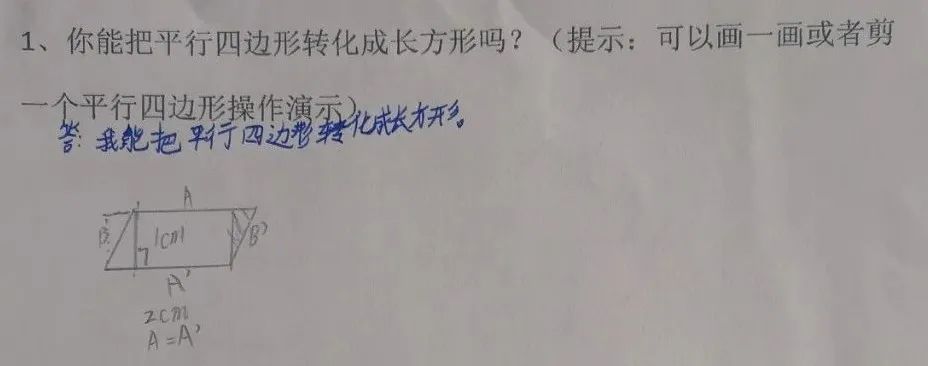 1、你能把平行四边形转化成长方形吗？（提示：可以画一画或者剪
一个平行四边形操作演示）
答：我能把平行四边形转化成长方形。
A
B 1cm B'
A'
2cm
A=A'